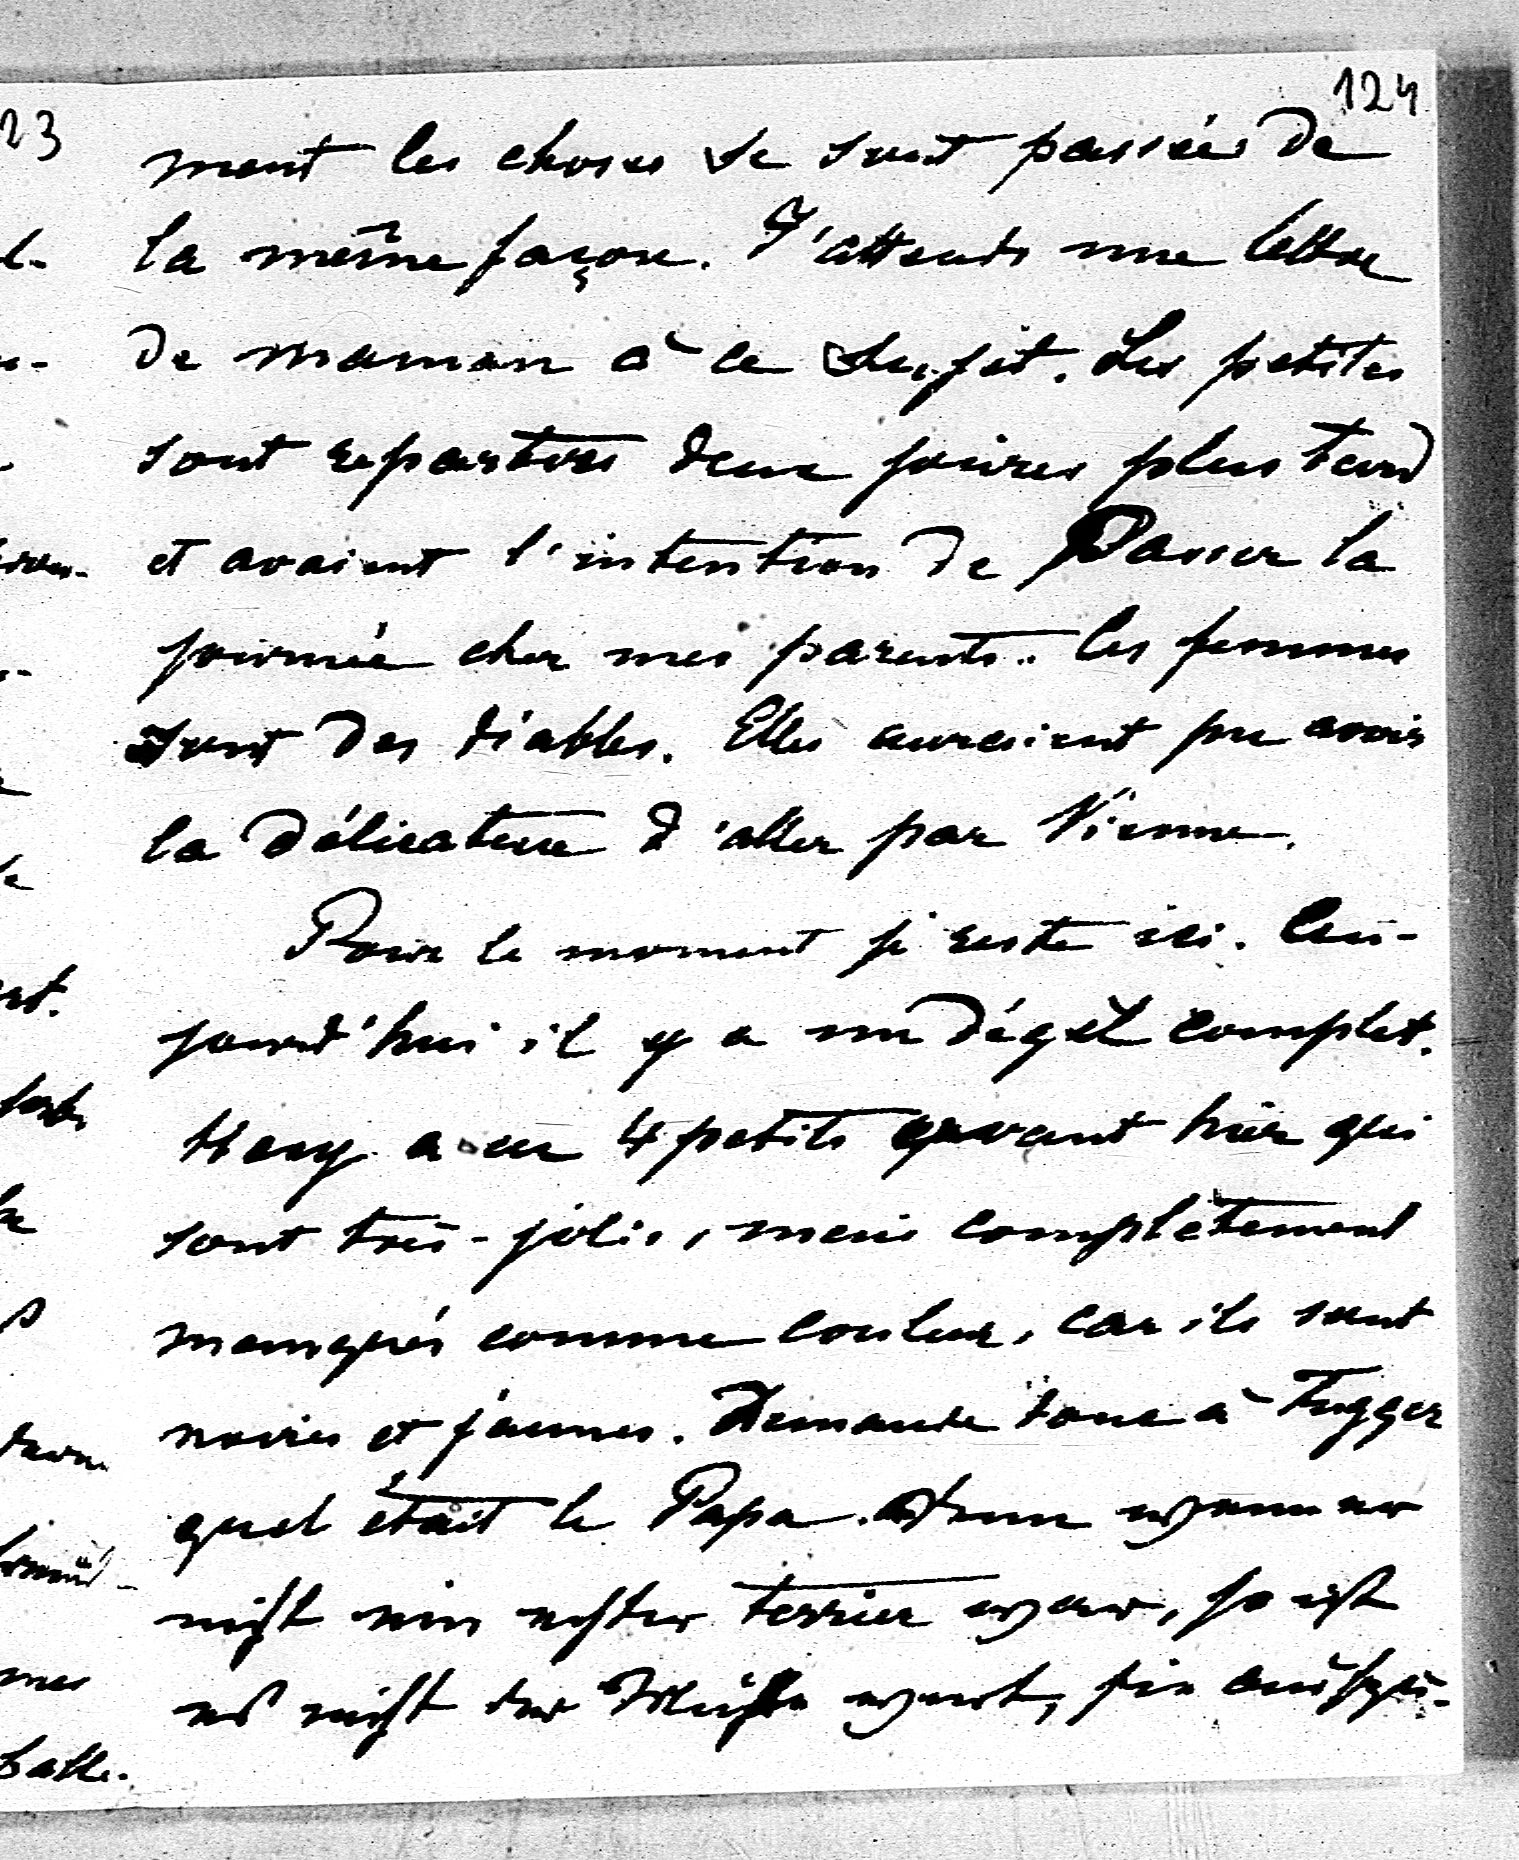 124
ment les choses se sont passées de
la même façon. J'attends une lettre
de maman à ce sujet. Les petites
sont reparties deux jours plus tard
et avaient l'intention de Passer la
journée chez mes parents. les femmes
sont des diables. Elles auraient pu avoir
la délicatesse d'aller par Vienne.
Pour le moment je reste ici. Au-
jourd'hui il y a un dégel complet.
a eu 4 petits avant hier qui
sont très-jolis, mais complètement
manqués comme couleur, car ils sont
noires et jaunes. Demande donc à Fugger
quel était le Papa. Denn wenn er
nicht ein echter terrier war, so ist
es nicht der Mühe wert, sie aufzu-